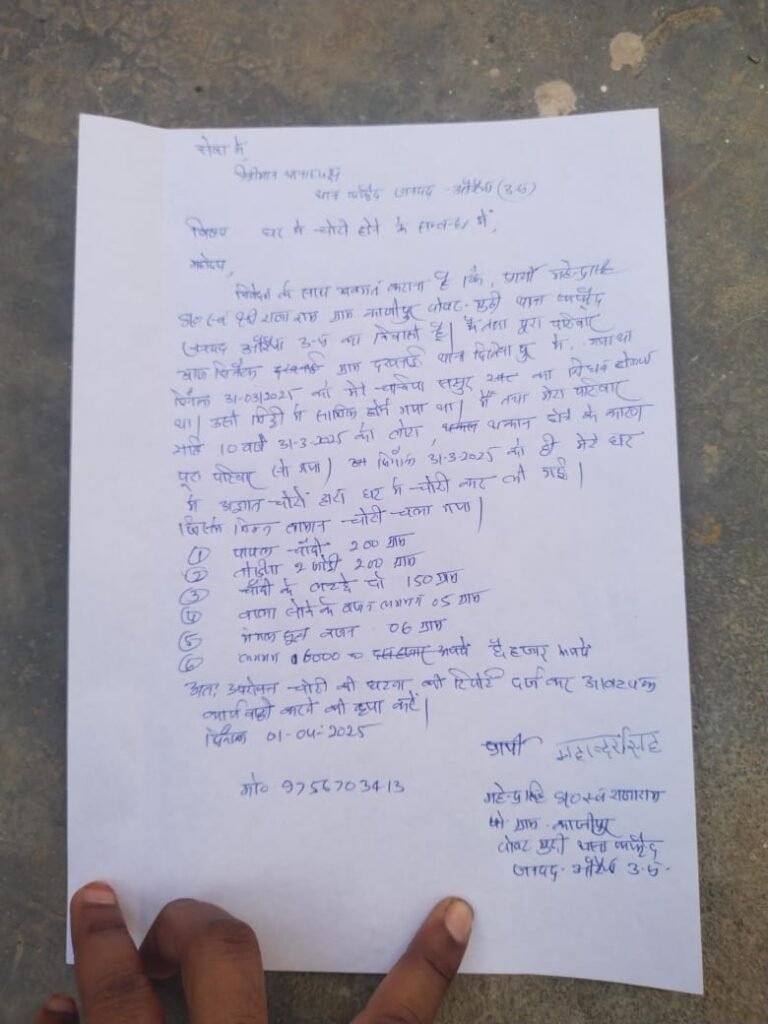 सेवा में,
श्रीमान थानाध्यक्ष
थाना फफूँद जनपद - औरैया (उ.प्र)
विषय घर में चोरी होने के सम्बन्ध में,
महोदय,
निवेदन के साथ अवगत कराना है कि, प्रार्थी महेन्द्र सिंह
S/o स्व श्री राजा राम ग्राम काजीपुर पोस्ट - मुढ़ी थाना फफूँद
जनपद औरैया उ.प्र का निवासी है। मैं तथा पूरा परिवार
ग्राम थाना दिबियापुर में गया था
दिनांक 31-03/2025 को मेरे चचिया ससुर का निधन होगया
था। उसी मिट्टी में सामिल होने गया था। मैं तथा मेरा परिवार
रात्रि 10 बजे 31-3-2025 को लौटा, थकान होने के कारण
पूरा परिवार सो गया। दिनांक 31-3-2025 को ही मेरे घर
में अज्ञात चोरों द्वारा घर में चोरी कर ली गई।
जिसमें निम्न सामान चोरी चला गया।
① पायल चाँदी 200 ग्राम
② तोड़िया 2 जोड़ी 200 ग्राम
③ चाँदी के लच्छे दो 150 ग्राम
④ वाला सोने के वजन लगभग 05 ग्राम
⑤ मंगल सूत्र वजन 06 ग्राम
⑥ लगभग 6000 = 00 छै हजार रूपये
अतः उपरोक्त चोरी की घटना की रिपोर्ट दर्ज कर आवश्यक
कार्यवाही करने की कृपा करें।
दिनांक 01-04-2025
प्रार्थी महेन्द्रसिंह
मो० 9756703413
महेन्द्र सिंह S/o स्व राजाराम
ग्राम काजीपुर
पोस्ट मुढ़ी थाना फफूँद
जनपद - औरैया उ.प्र.